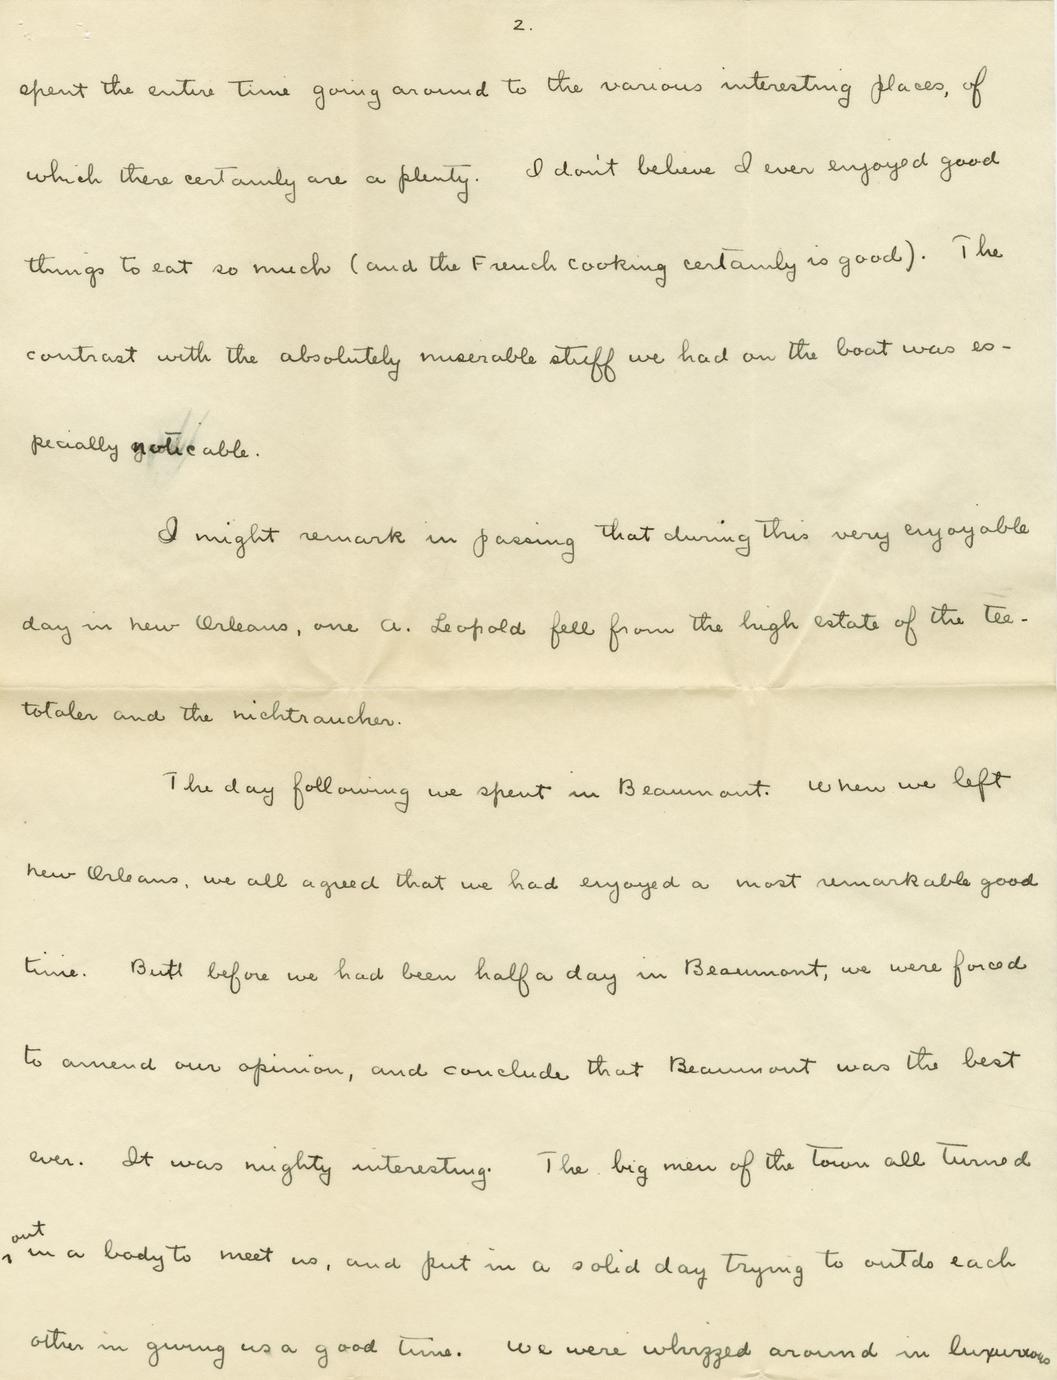 2.
spent the entire time going around to the various interesting places, of
which there certainly are a plenty. I don't believe I ever enjoyed good
things to eat so much (and the French cooking certainly is good). The
contrast with the absolutely miserable stuff we had on the boat was es-
pecially noticable.
I might remark in passing that during this very enjoyable
day in New Orleans, one A. Leopold fell from the high estate of the tee-
totaler and the nichtraucher.
The day following we spent in Beaumont. When we left
New Orleans, we all agreed that we had enjoyed a most remarkable good
time. But before we had been half a day in Beaumont, we were forced
to amend our opinion, and conclude that Beaumont was the best
ever. It was mighty interesting. The big men of the town all turned
out
in a body to meet us, and put in a solid day trying to outdo each
other in giving us a good time. We were whizzed around in luxurious